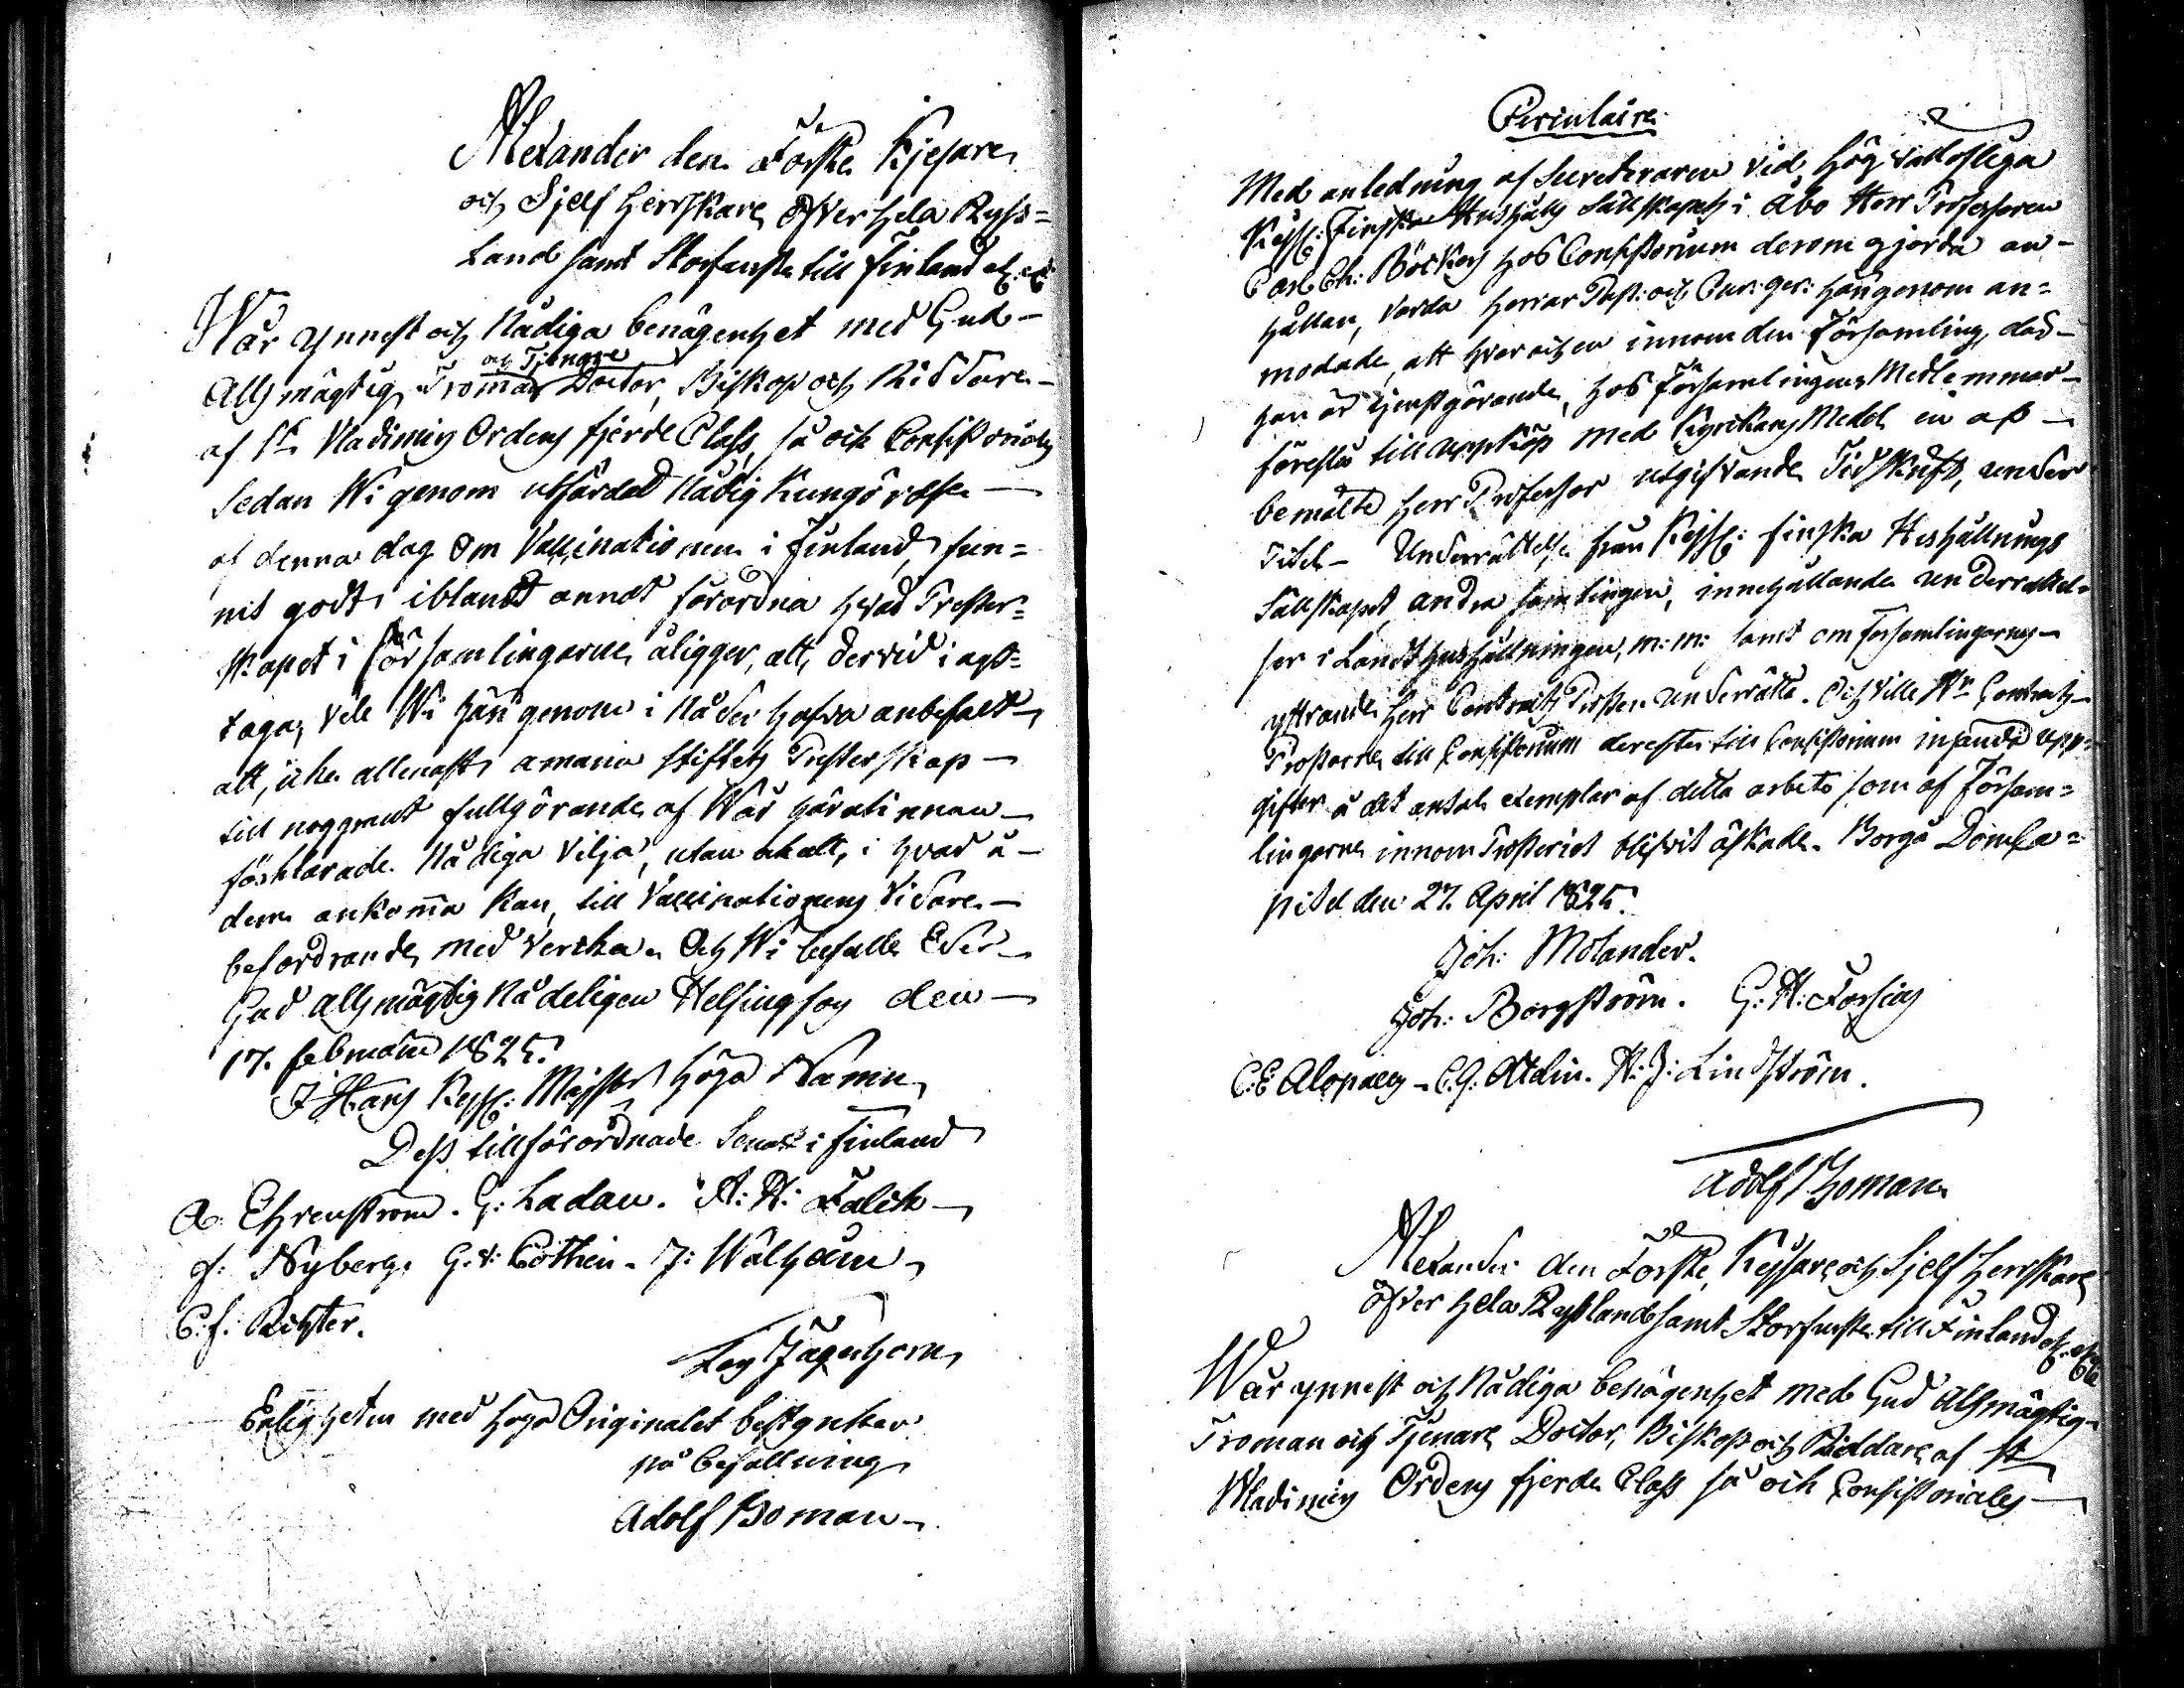 Alexander den Förste Kjesare
och Sjelf Herrskare öfver hela Ryss=
Land samt Storfurste till Finland etc: etc:
Wår ynnest och Nådiga benägenhet med Gud
och Tjenare
Allsmägtig, Troman Doctor, Biskop och Riddare
af St Vladimirs Ordens fjerde Class, så och Consistoriales
Sedan Wi genom utfärdad Nådig Kungörelse
af denna dag Om Vaccinationen i Finland, fun=
nit godt iblandt annat förordna hvad Prester=
skapet i församlingarne åligger, att dervid iagt=
taga, vele Wi härigenom i Nåder hafva anbefalt
att, icke allenast Stiftets Presterskap
till noggrant fullgörande af Wår häruti
förklarade Nådiga Vilja, utan ock att, i hvad å
dem ankomma kan, till Vaccinationens Vidare
befordrande, med verka. Och Wi befalle Eder
Gud allsmägtig Nådeligen Helsingfors den
17. februarii 1825.
I Hans Kejs: Majsts Höga Namn
Dess tillförordnade Senat i Finland
A: Ehrenström. G: Ladau. A: H: Falck
J: Nyberg. G: V: Cothen. J: Walheim
C. f. Richter.
Jägerhorn
Enligheten med höga Originalet bestyrker
på befallning
Adolf Boman
Circulaire
Med anledning af Secreteraren vid, Höglofliga
Kejs: Finska Hushålls Sällskapet i Åbo Herr Professoren
Carl Ch: Böckers hos Consistorium derom gjorda an=
hållan, varda Herrar Past: och Cur: ger: härigenom an=
modade, att hvar och en innom den församling, der
han är tjenstgörande, hos församlingens Medlemmar
föreslå till uppköp med Kyrkans Medel en af
bemälte Herr Professor utgifvande Tidskrift, under
Titel Underrättelse från Kejs: finska Hushållnings
Sällskapet, andra samlingen, innehållande underrättel=
ser i Landthushållningen, m: m: samt om församlingarnes
yttrande Herr Contracts Prosten underrätta. Och ville Hr Contracts
Prostarne till Consistorium derefter till Consistorium insända upp=
gifter å det antal exemplar af detta arbete som af försam=
lingarne innom Prosteriet blifvit äskade. Borgå Domca=
pitel den 27. April 1825.
Joh: Molander.
Joh: Borgström. G: H: Forsius
C. E Alopæus. C. G: Ahlin. H: J: Lindström.
Adolf Boman
Alexander den Förste, Kejsare och Sjelf Herrskare
öfver hela Ryssland samt Storfurste till Finland etc: etc: etc:
Wår ynnest och Nådiga benägenhet med Gud Allsmägtig
Troman och Tjenare, Doctor, Biskop och Riddare af St
Wladimirs Ordens fjerde Class så och Consistoriales